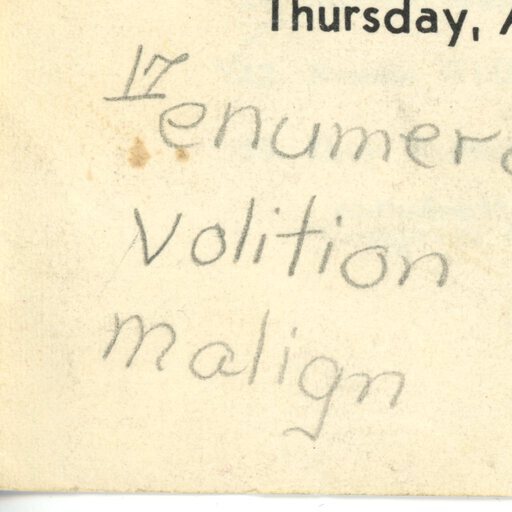 Thursday, A
17
enumera
volition
malign